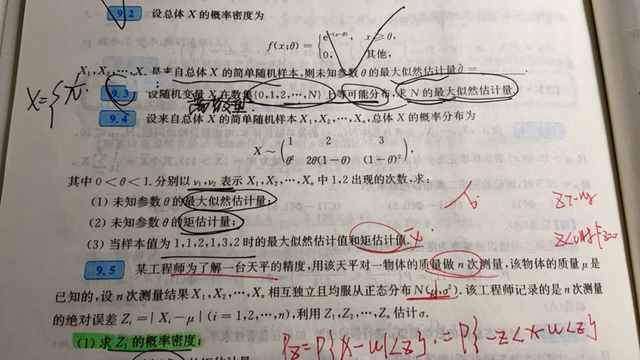 9.2 设总体 X 的概率密度为
f(x;θ)={e^{-(x-θ)}, x≥θ,
0, 其他,
X₁,X₂,…,Xₙ 是来自总体 X 的简单随机样本,则未知参数 θ 的最大似然估计量 θ̂=
X={
9.3 设随机变量 X 在数集{0,1,2,…,N}上等可能分布,求 N 的最大似然估计量.
9.4 设来自总体 X 的简单随机样本 X₁,X₂,…,Xₙ,总体 X 的概率分布为
X~(1 2 3
θ² 2θ(1-θ) (1-θ)²),
其中 0<θ<1.分别以 ν₁,ν₂ 表示 X₁,X₂,…,Xₙ 中 1,2 出现的次数,求:
(1) 未知参数 θ 的最大似然估计量;
(2) 未知参数 θ 的矩估计量;
(3) 当样本值为 1,1,2,1,3,2 时的最大似然估计值和矩估计值.
9.5 某工程师为了解一台天平的精度,用该天平对一物体的质量做 n 次测量,该物体的质量 μ 是
已知的,设 n 次测量结果 X₁,X₂,…,Xₙ 相互独立且均服从正态分布 N(μ,σ²).该工程师记录的是 n 次测量
的绝对误差 Zᵢ=|Xᵢ-μ|(i=1,2,…,n),利用 Z₁,Z₂,…,Zₙ 估计 σ.
(1) 求 Zᵢ 的概率密度;
=P{-z<x-u<z}